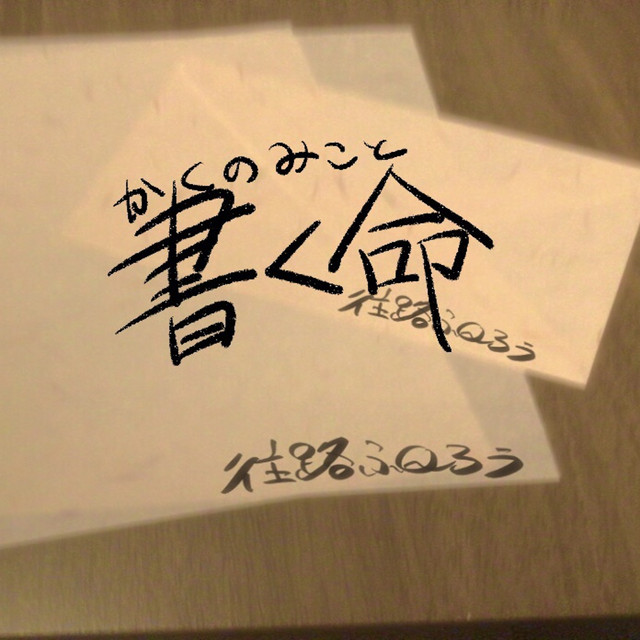 かくのみこと
書く命
往路ふゆろう
往路ふゆろう